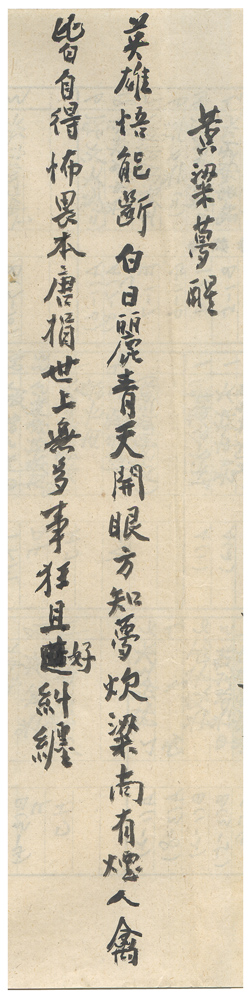 黄粱夢醒
英雄悟能斷白日麗青天開眼方知夢炊粱尚有煙人禽
皆自得怖畏本唐捐世上無多事狂且好糾纏